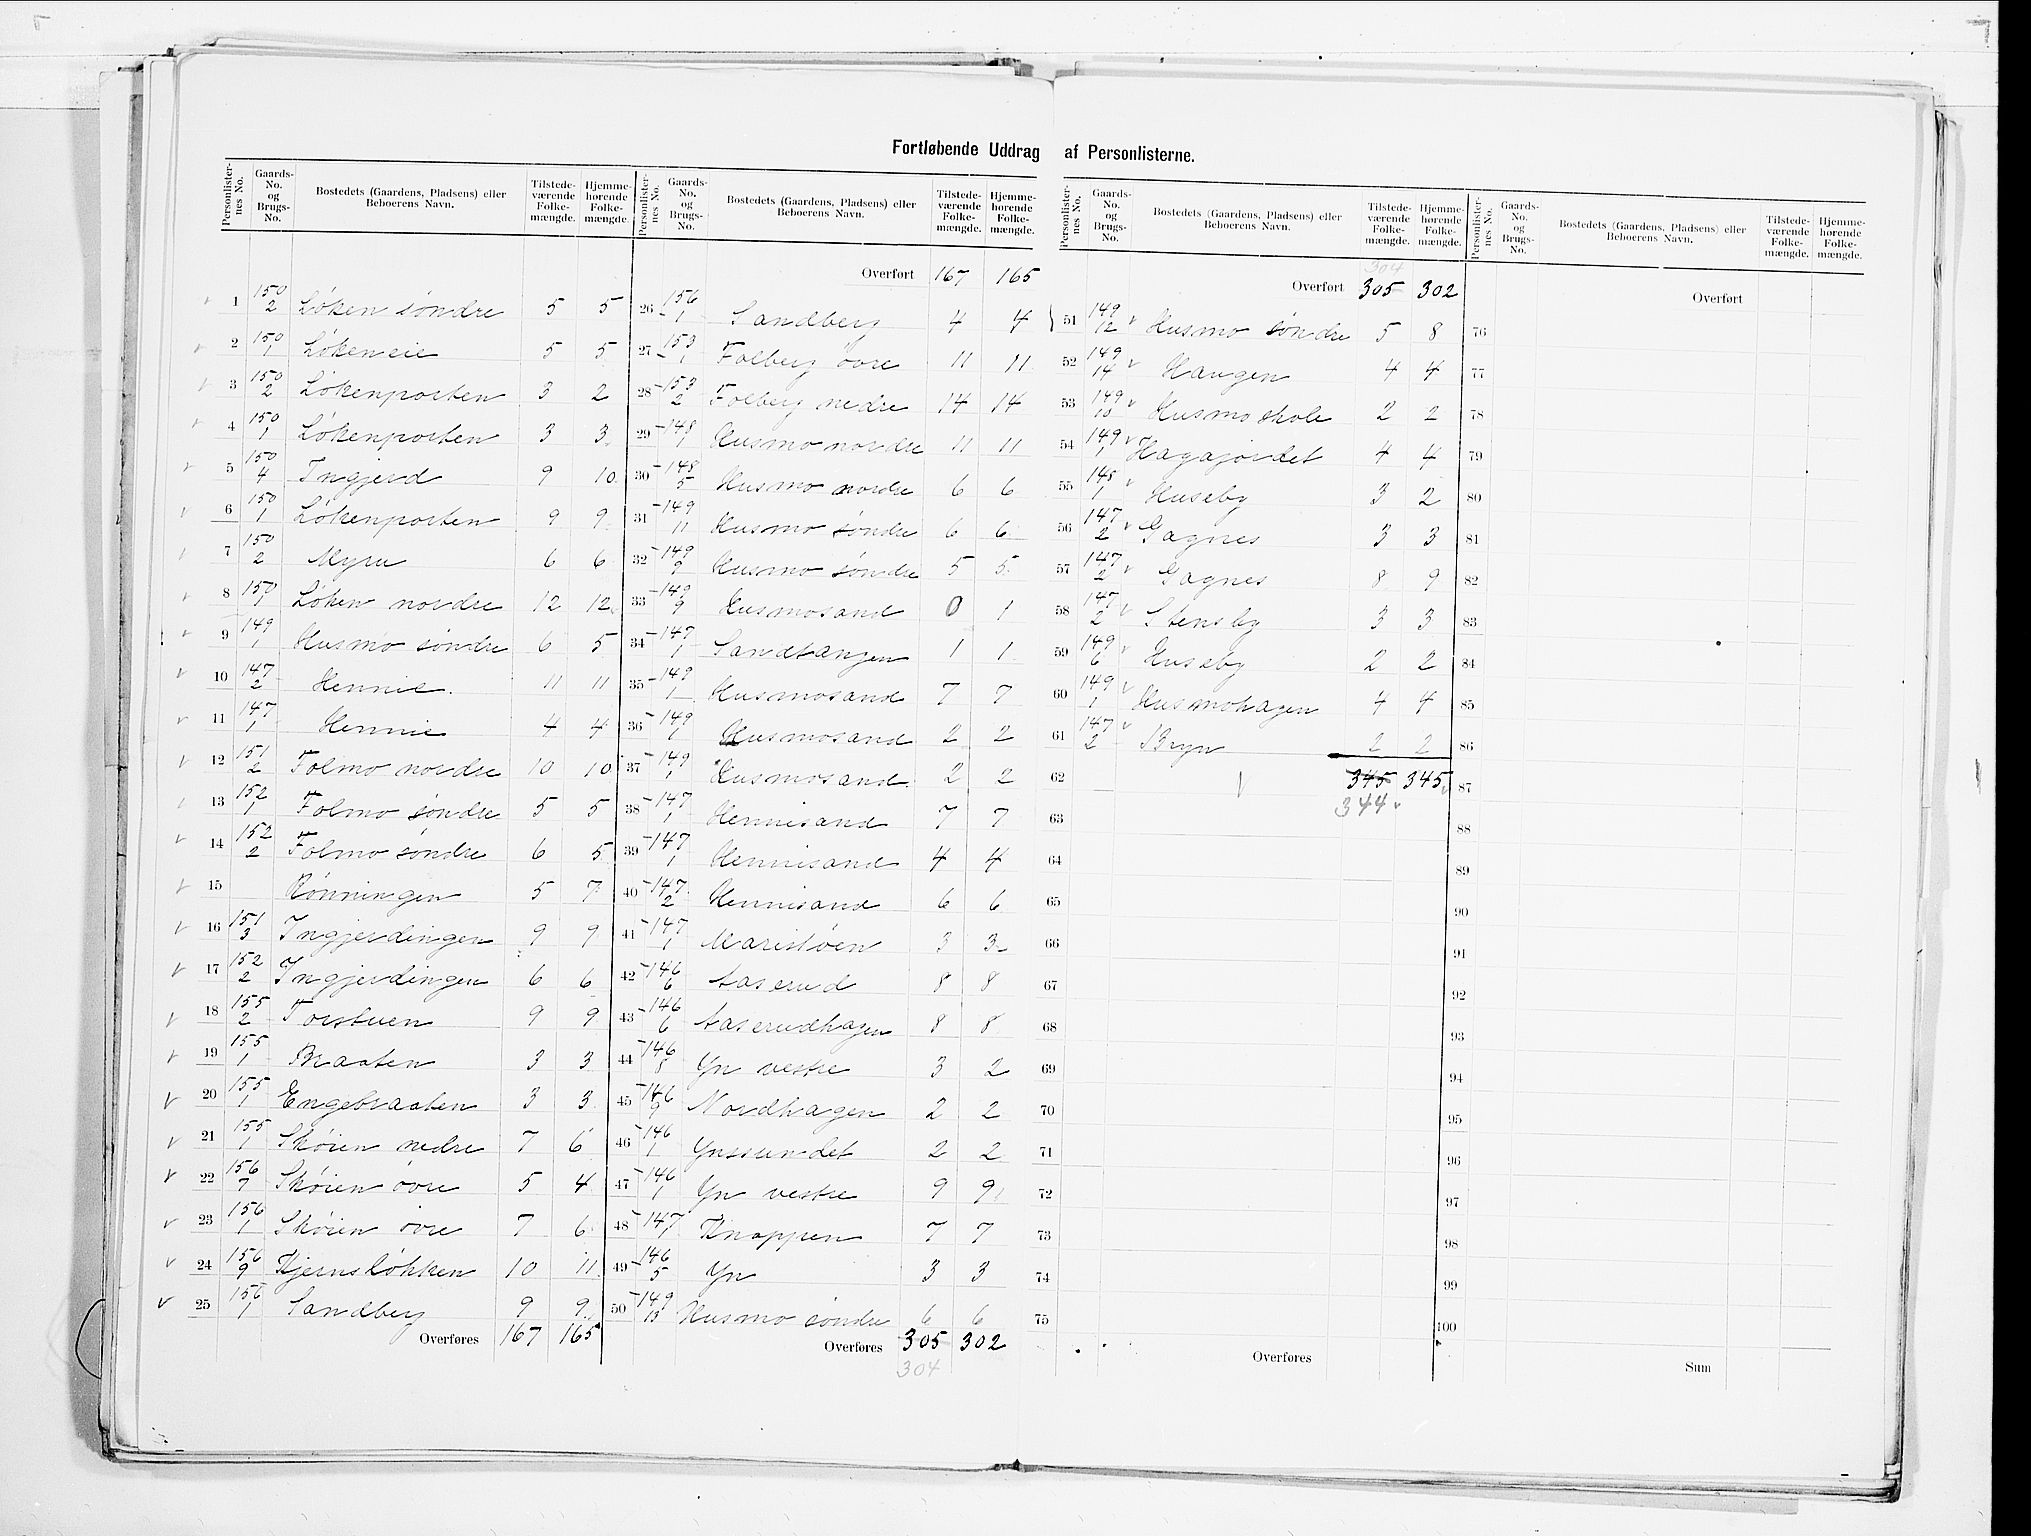 Fortløbende Uddrag af Personlisterne.
Personlisternes No. | Gaards-No. og Brugs-No. | Bostedets (Gaardens, Pladsens) eller Beboerens Navn. | Tilstedeværende Folkemængde. | Hjemmehørende Folkemængde.
1 150/2 Løken søndre 5 5
2 150/1 Løkeneie 5 5
3 150/2 Løkenporten 3 2
4 150/1 Løkenporten 3 3
5 150/4 Ingjerd 9 10
6 150/1 Løkenporten 9 9
7 150/2 Myra 6 6
8 150/1 Løken nordre 12 12
9 149/1 Husmo søndre 6 5
10 147/2 Hennie 11 11
11 147/1 Hennie 4 4
12 151/2 Folmo nordre 10 10
13 152/1 Folmo søndre 5 5
14 152/2 Folmo søndre 6 5
15 Rønningen 5 7
16 151/3 Ingjerdingen 9 9
17 152/2 Ingjerdingen 6 6
18 155/2 Torstuen 9 9
19 155/1 Braaten 3 3
20 155/1 Engebraaten 3 3
21 155/1 Skøien nedre 7 6
22 156/7 Skøien øvre 5 4
23 156/1 Skøien øvre 7 6
24 156/9 Kjernsløkken 10 11
25 156/1 Sandberg 9 9
Overføres 167 165
Personlisternes No. | Gaards-No. og Brugs-No. | Bostedets (Gaardens, Pladsens) eller Beboerens Navn. | Tilstedeværende Folkemængde. | Hjemmehørende Folkemængde.
Overført 167 165
26 156/1 Sandberg 4 4
27 153/1 Folberg øvre 11 11
28 153/2 Folberg nedre 14 14
29 148/1 Husmo nordre 11 11
30 148/5 Husmo nordre 6 6
31 149/11 Husmo søndre 6 6
32 149/9 Husmo søndre 5 5
33 149/9 Husmosand 0 1
34 147/1 Sandtangen 1 1
35 149/1 Husmosand 7 7
36 149/1 Husmosand 2 2
37 149/1 Husmosand 2 2
38 147/1 Hennisand 7 7
39 147/1 Hennisand 4 4
40 147/2 Hennisand 6 6
41 147/1 Maristøen 3 3
42 146/6 Aaserud 8 8
43 146/6 Aaserudhagen 8 8
44 146/8 Yn vestre 3 2
45 146/9 Nordhagen 2 2
46 146/1 Ynssundet 2 2
47 146/1 Yn vestre 9 9
48 147 Knappen 7 7
49 146/5 Yn 3 3
50 149/13 Husmo søndre 6 6
Overføres 305 302
304
Personlisternes No. | Gaards-No. og Brugs-No. | Bostedets (Gaardens, Pladsens) eller Beboerens Navn. | Tilstedeværende Folkemængde. | Hjemmehørende Folkemængde.
304
Overført 305 302
51 149/12 Husmo søndre 5 8
52 149/14 Haugen 4 4
53 149/10 Husmo skole 2 2
54 149/1 Hagajordet 4 4
55 148/1 Huseby 3 2
56 147/2 Gagnes 3 3
57 147/2 Gagnes 8 9
58 147/2 Stensby 3 3
59 149/6 Huseby 2 2
60 149/1 Husmohagen 4 4
61 147/2 Bryn 2 2
62 345 345
344
63
64
65
66
67
68
69
70
71
72
73
74
75
Overføres
Personlisternes No. | Gaards-No. og Brugs-No. | Bostedets (Gaardens, Pladsens) eller Beboerens Navn. | Tilstedeværende Folkemængde. | Hjemmehørende Folkemængde.
Overført
76
77
78
79
80
81
82
83
84
85
86
87
88
89
90
91
92
93
94
95
96
97
98
99
100
Sum